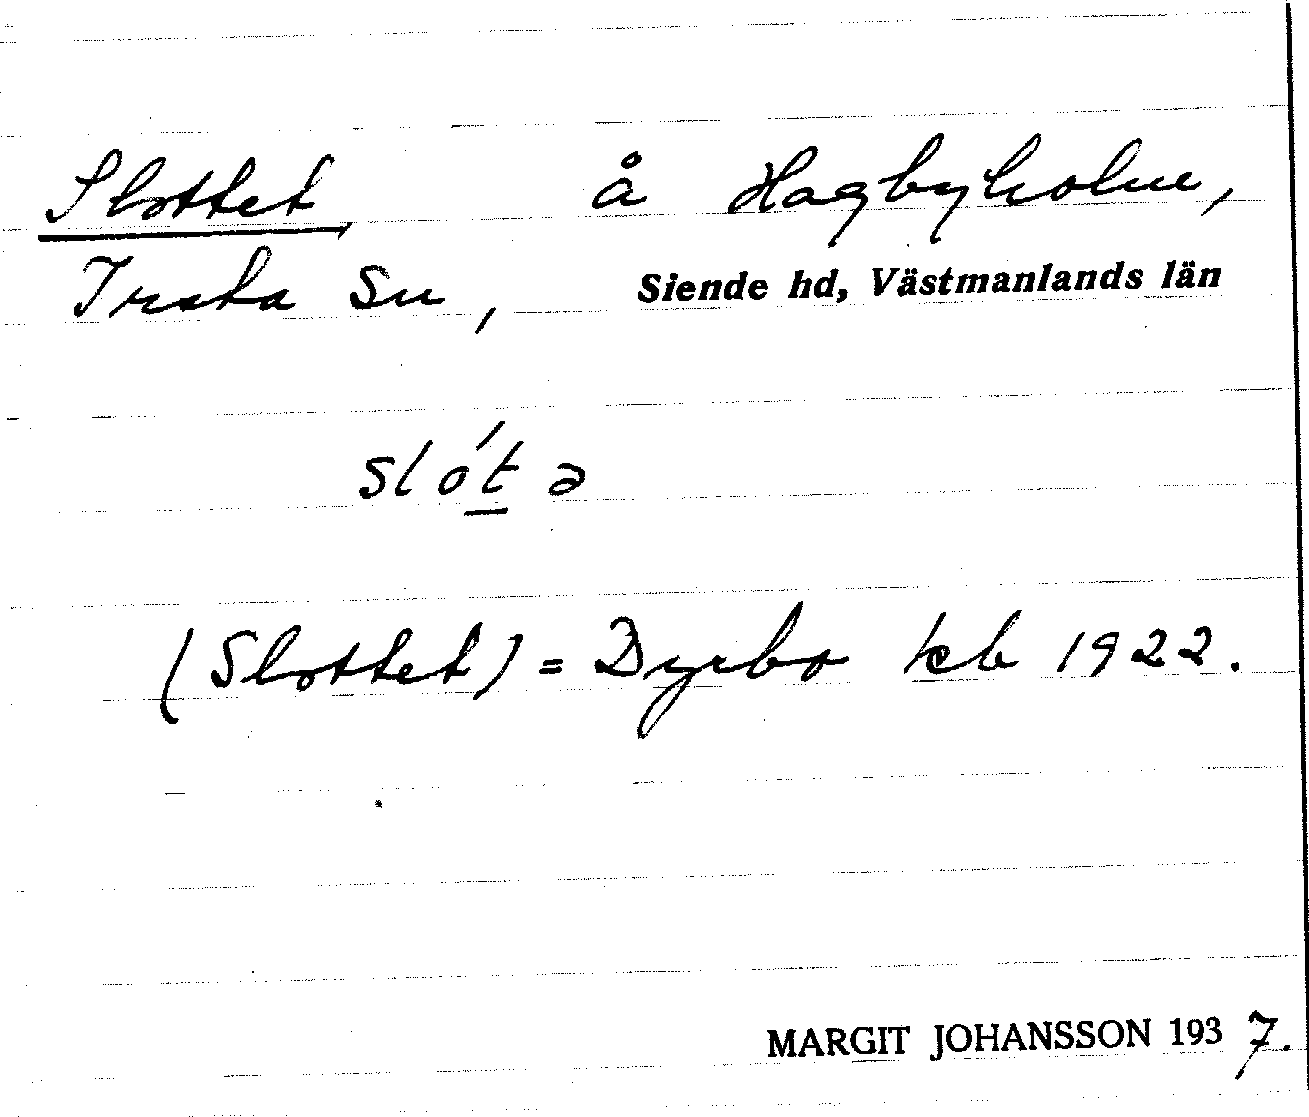 Slottet, å Hagbyholm,
Irsta Sn, Siende hd, Västmanlands län
slót̲ ə
(Slottet) = Dyrbo kb 1922.
MARGIT JOHANSSON 1937.